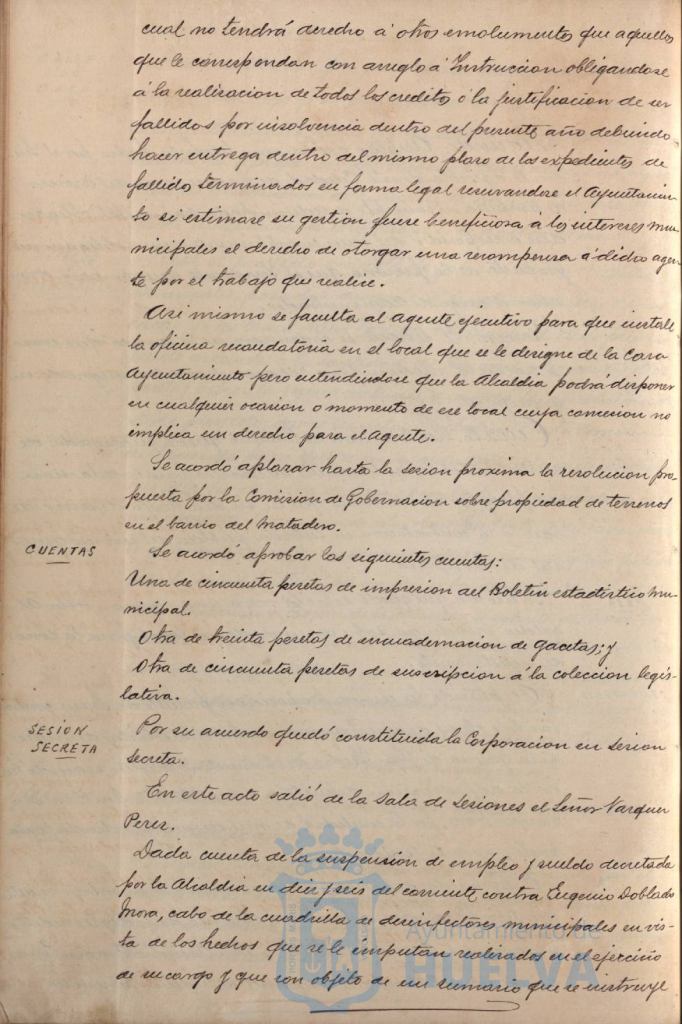 cual no tendrá derecho á otros emolumentos que aquellos
que le correspondan con arreglo á Instruccion obligandose
á la realizacion de todos los creditos ó la justificacion de ser
fallidos por insolvencia dentro del presente año debiendo
hacer entrega dentro del mismo plazo de los expedientes de
fallido terminados en forma legal reservandose el Ayuntamien-
to si estimase su gestion fuese beneficiosa á los intereses mu-
nicipales el derecho de otorgar una recompensa á dicho agen-
te por el trabajo que realice.
Asi mismo se faculta al agente ejecutivo para que instale
la oficina recaudatoria en el local que se le designe de la Casa
Ayuntamiento pero entendiendose que la Alcaldia podrá disponer
en cualquier ocasion ó momento de ese local cuya concesion no
implica un derecho para el Agente.
Se acordó aplazar hasta la sesion proxima la resolucion pro-
puesta por la Comision de Gobernacion sobre propiedad de terrenos
en el barrio del Matadero.
CUENTAS
Se acordó aprobar las siguientes cuentas:
Una de cincuenta pesetas de impresion del Boletin estadistico mu-
nicipal.
Otra de treinta pesetas de encuadernacion de Gacetas; y
Otra de cincuenta pesetas de suscripcion á la coleccion legis-
lativa.
SESION
SECRETA
Por su acuerdo quedó constituida la Corporacion en sesion
secreta.
En este acto salió de la Sala de Sesiones el Señor Vazquez
Perez.
Dada cuenta de la suspension de empleo y sueldo decretada
por la Alcaldia en diez y seis del corriente contra Eugenio Doblado
Mora, cabo de la cuadrilla de desinfectores municipales en vis-
ta de los hechos que se le imputan realizados en el ejercicio
de su cargo y que son objeto de un sumario que se instruye
Ayuntamiento de
HUELVA